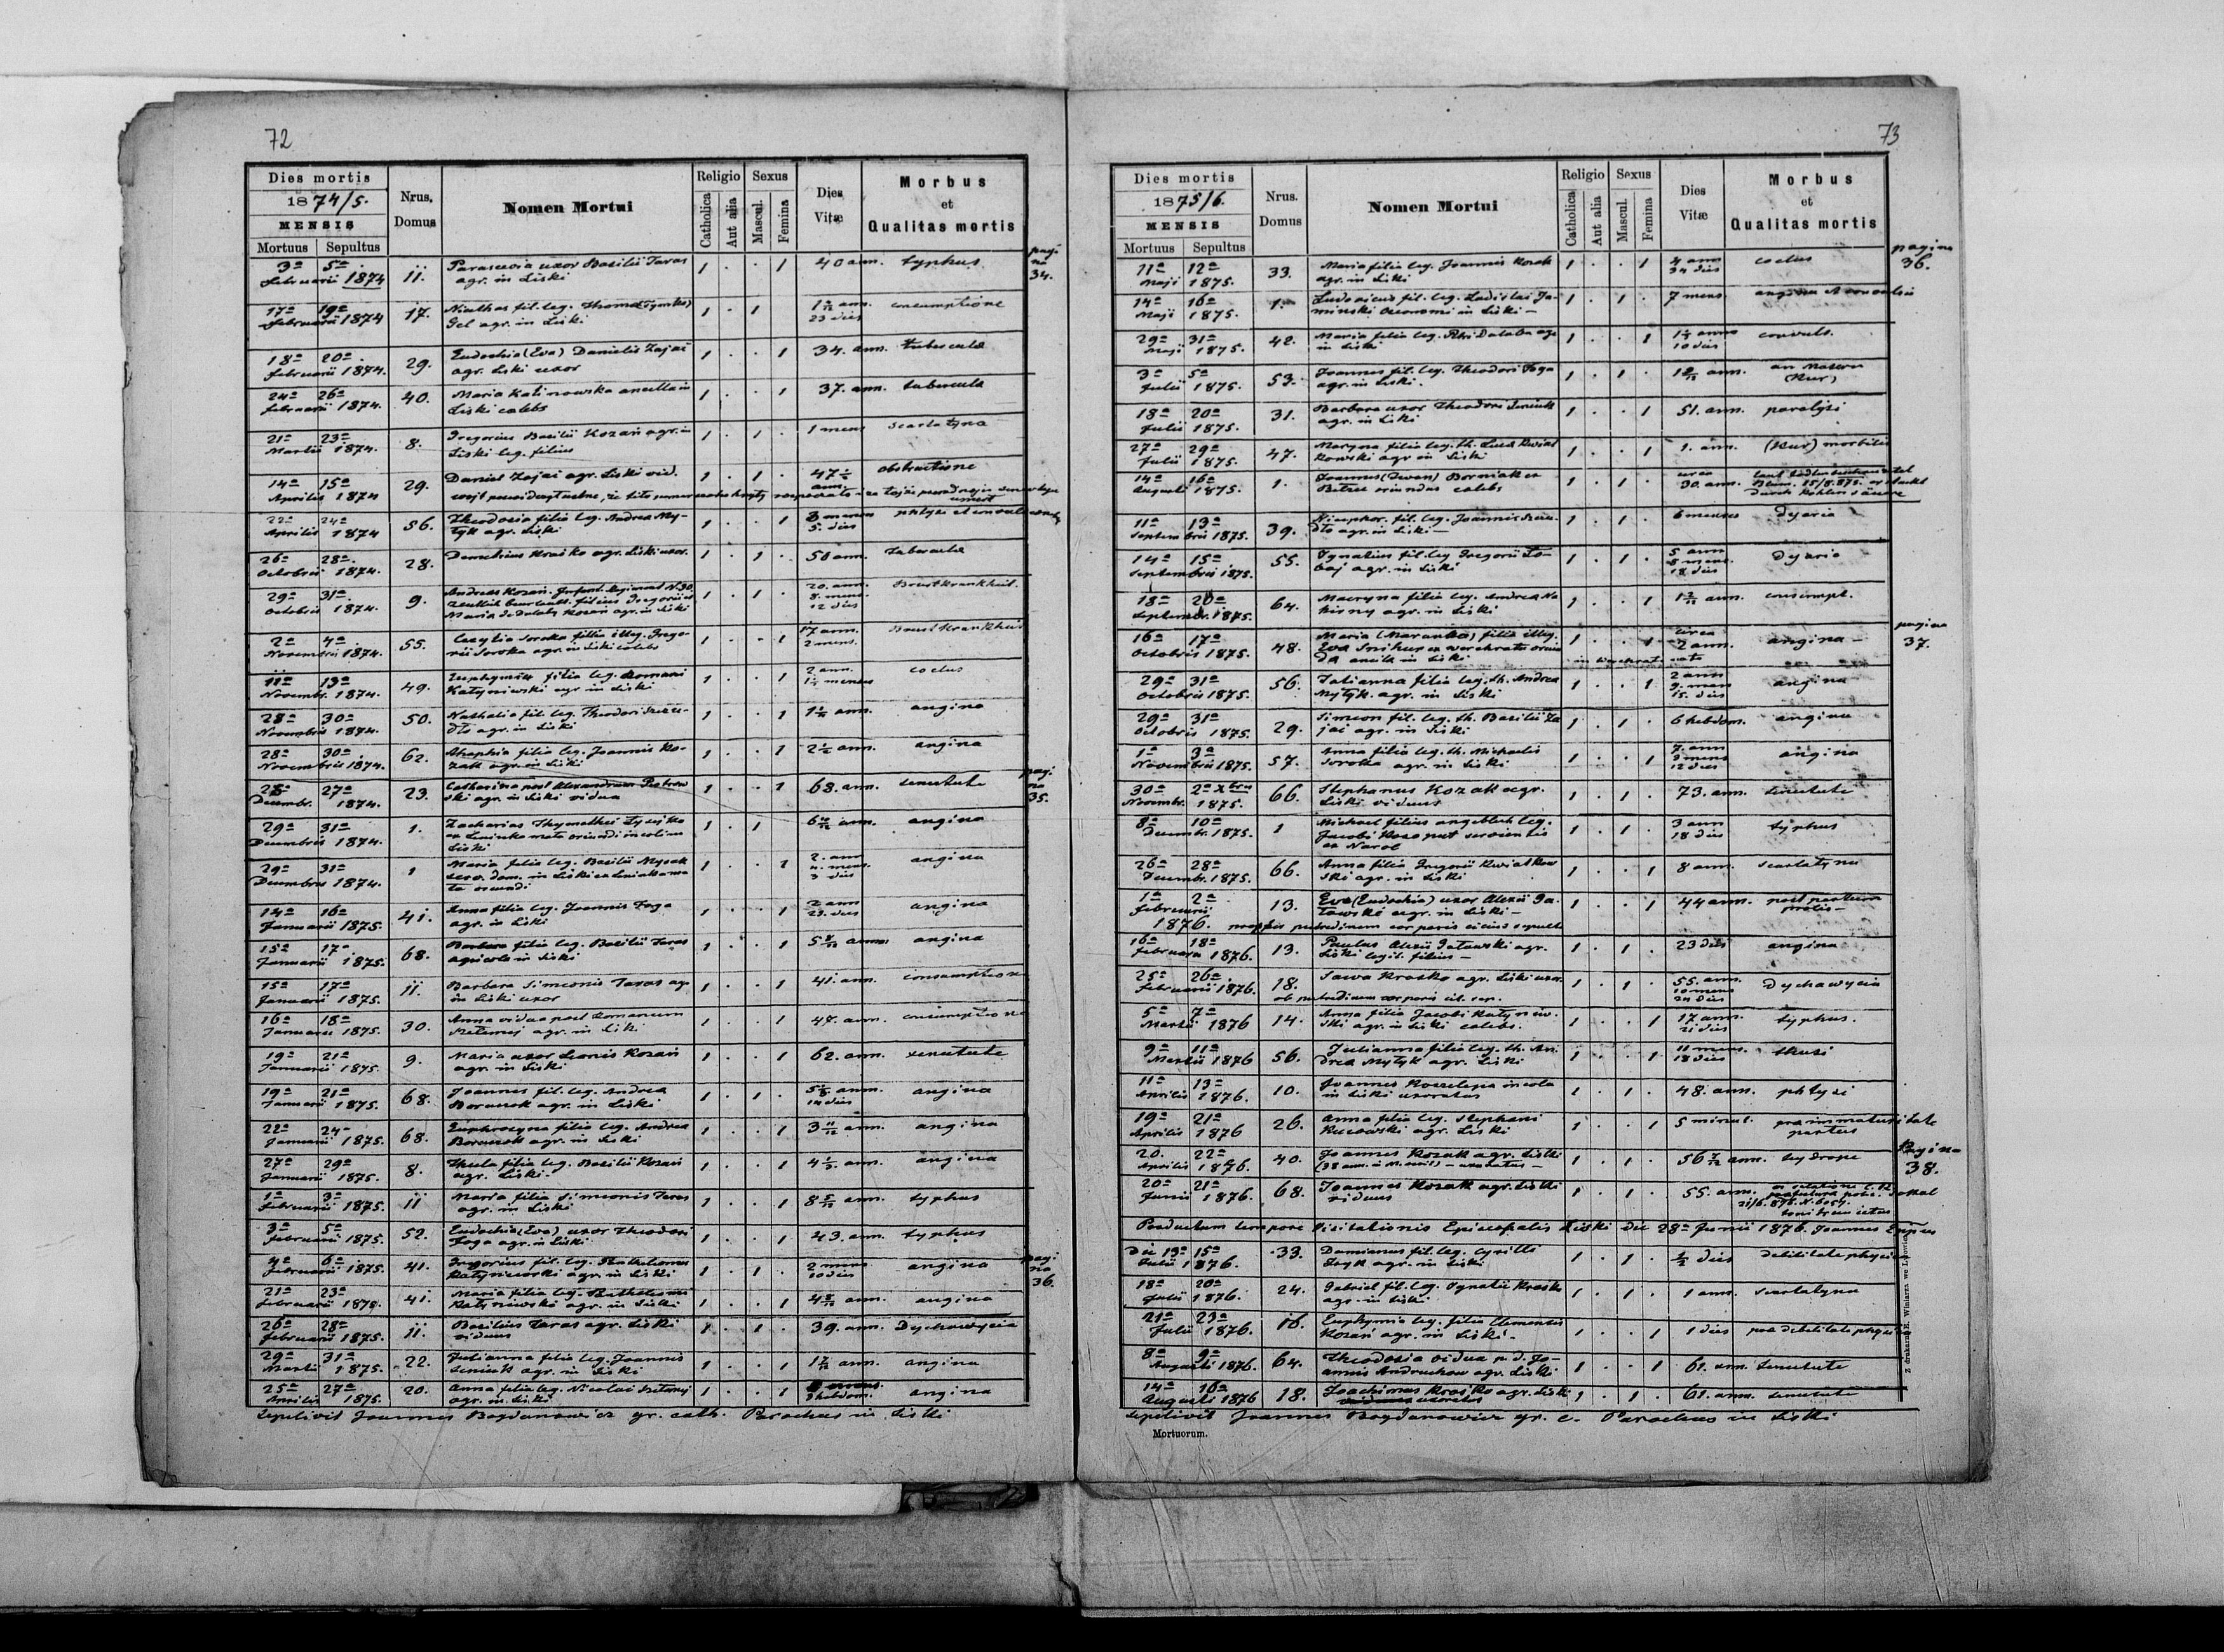 72
Dies mortis
1874/5.
MENSIS
Mortuus Sepultus
Nrus. Domus
Nomen Mortui
Religio
Catholica
Aut alia
Sexus
Mascul.
Femina
Dies Vitæ
Morbus et Qualitas mortis
3a 5a Februarii 1874 11. Parascevia uxor Basilii Taras 1 . . 1 40 ann. typhus
agr. in Liski
pagina 34.
17a 19a Februarii 1874 17. fil. leg. Thomae (Tymko) 1 . 1 ann. consumptione
agr. in Liski 23 dies
18a 20a Februarii 1874. 29. Eudochia (Eva) Danielis Zajac 1 . . 1 34. ann. tubercula
agr. Liski uxor
24a 26a Februarii 1874. 40. Maria Kalinowska ancilla in 1 . . 1 37. ann. tubercula
Liski caelebs
21a 23a Martii 1874. 8. Gregorius Basilii Kozan agr. in 1 . 1 . 1 mens scarlatyna
Liski leg. filius
14a 15a Aprilis 1874 29. Daniel Zajac agr. Liski vid. 1 . 1 . 47 ann. obstructione
22a 24a Aprilis 1874 56. Theodosia filia leg. Andrea My- 1 . . 1 3 menses
tyk agr. Liski 5. dies
26a 28a Octobris 1874. 28. Demetrius Krasko agr. Liski uxor. 1 . 1 . 50 ann. tubercula
29a 31a Octobris 1874. 9. Andreas Kozan. 1 . 1 . 20. ann. Brustkrankheit.
8. mens.
12 dies
2a 4a Novembris 1874. 55. Cecylia Soroka filia illeg. Grego- 1 . . 1 17 ann. Brustkrankheit
rii Soroka agr. in Liski caelebs 2 mens.
11a 13a Novembr. 1874. 49. filia leg. Romani 1 . . 1 2 ann. coclus
Katyniewski agr in Liski
28a 30a Novembris 1874. 50. Nathalia fil. leg. Theodori 1 . . 1 ann. angina
agr. in Liski
28a 30a Novembris 1874. 62. Ataphia filia leg. Joannis Ko- 1 . . 1 ann. angina
zak agr. in Liski
27a Decembr. 1874. 23. Catharina post Alexandrum 1 . . 1 68. ann. senectute
agr. in Liski vidua
pagina 35.
29a 31a Decembris 1874. 1. Zacharias Thymothei 1 . 1 ann. angina
Liski
29a 31a Decembris 1874. 1 Maria filia leg. Basilii 1 . . 1 2. ann angina
3 dies
14a 16a Januarii 1875. 41. Anna filia leg. Joannis Foga 1 . . 1 2 ann angina
agr. in Liski 23. dies
15a 17a Januarii 1875. 68. Barbara filia leg. Basilii Taras 1 . . 1 annos angina
agricola in Liski
15a 17a Januarii 1875. 11. Barbara Simeonis Taras agr 1 . . 1 41. ann. consumptione
in Liski uxor
16a 18a Januarii 1875. 30. Anna vidua post Romanum 1 . . 1 47. ann. consumptione
agr. in Liki
19a 21a Januarii 1875. 9. Maria uxor Leonis Kozan 1 . . 1 62. ann. senectute
agr. in Liski
19a 21a Januarii 1875. 68. Joannes fil. leg. Andrea 1 . 1 . ann. angina
agr. in Liski 14 dies
22a 24a Januarii 1875. 68. Euphrosyna filia leg. Andrea 1 . . 1 3 11/12 ann. angina
agr. in Liski
27a 29a Januarii 1875. 8. Thecla filia leg. Basilii Kozan 1 . . 1 ann. angina
agr. Liski
1a 3a Februarii 1875. 11 Maria filia Simeonis Taras 1 . . 1 ann. typhus
agr. in Liski
3a 5a Februarii 1875. 52. Eudochia (Eva) uxor Theodori 1 . . 1 43. ann. typhus
Foga agr. in Liski
4a 6a Februarii 1875. 41. Gregorius fil. leg. 1 . 1 . 2 mens angina
Katyniewski agr. in Liski 10 dies
pagina 36.
21a 23a Februarii 1875. 41. Maria filia leg. 1 . . 1 ann. angina
Katyniewski agr. in Liski
26a 28a Februarii 1875. 11. Basilius Taras agr. Liski 1 . 1 . 39. ann. Dychawycia
viduus
29a 31a Martii 1875. 22. Julianna filia leg. Joannis 1 . . 1 ann. angina
agr. in Liski
25a 27a Aprilis 1875. 20. Anna filia leg. Nicolai 1 . . 1 3 hebdom. angina
agr. in Liski
Sepelivit Joannes Bogdanowicz gr. cath. Parochus in Liski
73
Dies mortis
1875/6.
MENSIS
Mortuus Sepultus
Nrus. Domus
Nomen Mortui
Religio
Catholica
Aut alia
Sexus
Mascul.
Femina
Dies Vitæ
Morbus et Qualitas mortis
11a 12a Maji 1875. 33. Maria filia leg. Joannis Kozak 1 . . 1 4 ann coclus
agr. in Liski 24 dies
pagina 36.
14a 16a Maji 1875. 1. Ludovicus fil. leg. Ladislai Ja- 1 . 1 . 7 mens angina
minski Oeconomi in Liski
29a 31a Maji 1875. 42. Maria filia leg. Petri agr 1 . . 1 anno convuls.
in Liski 10 dies
3a 5a Julii 1875. 53. Joannes fil. leg. Theodori Foga 1 . 1 . ann. an Masern
agr. in Liski. (Kur)
18a 20a Julii 1875. 31. Barbara uxor Theodori 1 . . 1 51. ann. paralysi
agr. in Liski
27a 29a Julii 1875. 47. Maryna filia leg. th. Luca Kwiat 1 . . 1 1. ann. (Kur) morbilis
kowski agr in Liski
14a 16a Augusti 1875. 1. Joannes (Iwan) Borniak ex 1 . 1 . circa
Betzec oriundus caelebs 30. ann.
11a 13a Septembris 1875. 39. Nicephor. fil. leg. Joannis 1 . 1 . 6 menses Dyaria
agr. in Liski
14a 15a Septembris 1875. 55. Ignatius fil. leg Gregorii 1 . 1 . 5 ann Dyario
agr. in Liski 18 dies
18a 20a Septembr. 1875. 64. Macryna filia leg. Andrea 1 . . 1 ann. consumpt.
agr. in Liski
16a 17a Octobris 1875. 48. Maria (Maranka) filia illeg. 1 . . 1 circa 2 ann. angina
ancilla in Liski
pagina 37.
29a 31a Octobris 1875. 56. Tatianna filia leg. th. Andrea 1 . . 1 2 ann angina
Mytyk. agr. in Liski 15. dies
29a 31a Octobris 1875. 29. Simeon fil. leg. th. Basilii Za 1 . 1 . 6 hebdom. angina
jac agr. in Liski
1a 3a Novembris 1875. 57. Anna filia leg. th. Michaelis 1 . . 1 7. ann angina
Soroka agr. in Liski 12 dies
30a 2a Xbris Novembr. 1875. 66. Stephanus Kozak agr. 1 . 1 . 73. ann. senectute
Liski viduus
8a 10a Decembr. 1875. 1 Michael filius angeblich leg. 1 . 1 . 3 ann typhus
Jacobi 18 dies
ex Narol
26a 28a Decembr. 1875. 66. Anna filia Gregorii Kwiatkow 1 . . 1 8 ann. scarlatyna
ski agr. in Liski
1a 2a Februarii 1876. 13. Eva (Eudochia) uxor Alexii Ga- 1 . . 1 44 ann. post partum prolis
towski agr. in Liski
propter putredinem corporis citius sepulta
16a 18a Februarii 1876. 13. Paulus Alexii Gatowski agr. 1 . 1 . 23 dies angina
Liski legit. filius
25a 26a Februarii 1876. 18. Sawa Krasko agr. Liski uxor. 1 . 1 . 55. ann. Dychawycia
ob putredinem corporis cit. sep. 10 mens 24 dies
5a 7a Martii 1876 14. Anna filia Jacobi Katyniew- 1 . . 1 17 ann. typhus.
ski agr. in Liski caelebs. 21 dies
9a 11a Martii 1876 56. Julianna filia leg. th. An- 1 . . 1 11 mens. tkusi
drea Mytyk agr. Liski 18 dies
11a 13a Aprilis 1876. 10. Joannes incola 1 . 1 . 48. ann. phtysi
in Liski uxoratus
19a 21a Aprilis 1876 26. Anna filia leg. Stephani 1 . . 1 5 minut. prae immaturitate
agr. Liski partus
20. 22a Aprilis 1876. 40. Joannes Kozak agr. Liski 1 . 1 . ann. hydrope
uxoratus
Pagina 38.
20a 21a Junii 1876. 68. Joannes Kozak agr. Liski 1 . 1 . 55. ann.
viduus
Productum tempore Visitationis Episcopalis Liski die 28a Junii 1876. Joannes
Die 13a 15a Julii 1876. 33. Damianus fil. leg. Cyrilli 1 . 1 . 1/2 dies debilitate physica
agr. in Liski
18a 20a Julii 1876. 24. Gabriel fil. leg. Ignatii Krasko 1 . 1 . 1 ann. scarlatyna
agr. in Liski
21a 23a Julii 1876. 16. Euphymia leg. filia Clementis 1 . . 1 1 dies prae debilitate physica
Kozan agr. in Liski
8a 9a Augusti 1876. 64. Theodosia vidua p. d. Jo- 1 . . 1 61. ann. senectute
annis Andruchow agr. Liski
14a 16a Augusti 1876 18. Joachimus Krasko agr. Liski 1 . 1 . 61. ann. senectute
uxoratus
Sepelivit Joannes Bogdanowicz gr. c. Parochus in Liski
Mortuorum.
Z drukarni E. Winiarza we Lwowie.